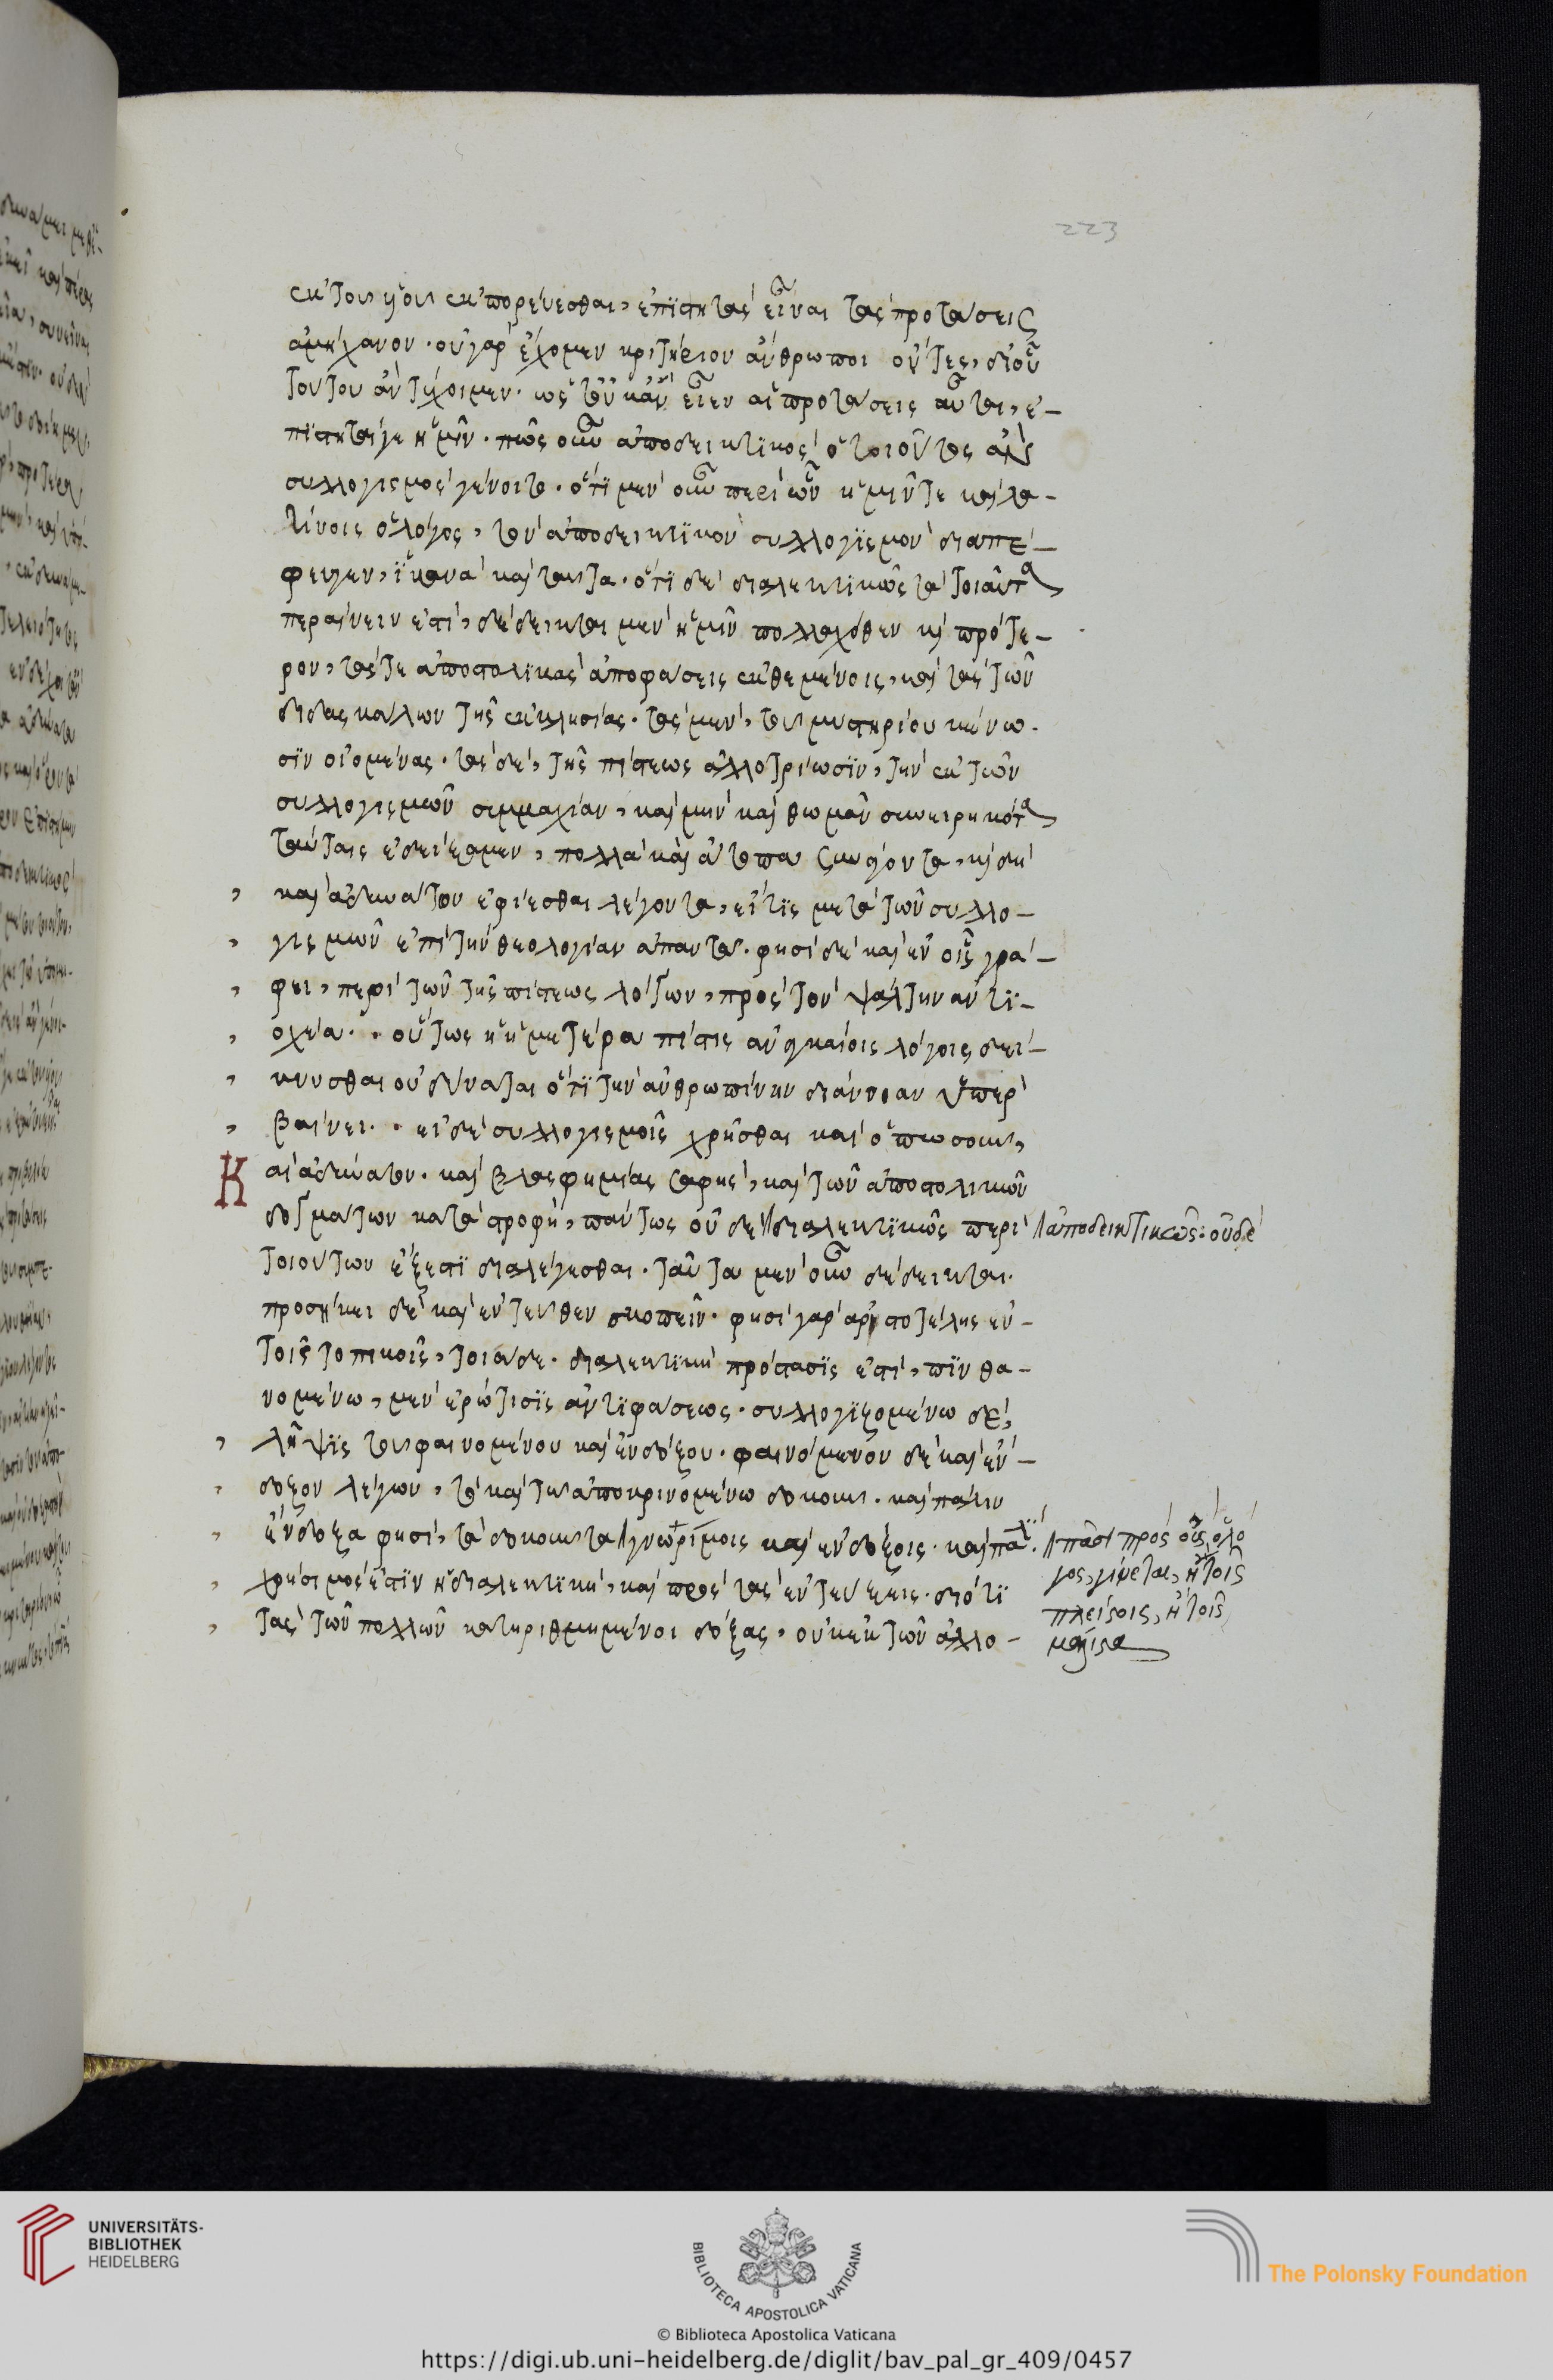 223
ἐκ τοῦ υἱοῦ ἐκπορεύεσθαι, ἐπιστητὰς εἶναι τὰς προτάσεις
ἀμήχανον. οὐ γὰρ ἔχομεν κριτήριον ἄνθρωποι ὄντες, δι' οὗ
τούτου ἂν τύχοιμεν. ὥστε κἂν εἶεν αἱ προτάσεις αὗται, ἐ-
πιστηταί γε ἡμῖν. πῶς οὖν ἀποδεικτικὸς ὁ τοιοῦτος
συλλογισμὸς γένοιτο. ὅτι μὲν οὖν περὶ ὧν ἡμῖν τε καὶ λα-
τίνοις ὁ λόγος, τὸν ἀποδεικτικὸν συλλογισμὸν διαπέ-
φευγεν, ἱκανὰ καὶ ταῦτα. ὅτι δὲ διαλεκτικῶς τὰ τοιαῦτα
περαίνειν ἐστὶ, δέδεικται μὲν ἡμῖν πολλαχόθεν κ πρότε-
ρον, τάς τε ἀποστολικὰς ἀποφάσεις ἐκθεμένοις, καὶ τὰς τῶν
διδασκάλων τῆς ἐκκλησίας. τὰς μὲν, τοῦ μυστηρίου κένω-
σιν οἰομένας. τὰς δὲ, τῆς πίστεως ἀλλοτρίωσιν, τὴν ἐκ τῶν
συλλογισμῶν συμμαχίαν, καὶ μὴν καὶ θωμᾶν συνειρηκότα
ταύταις ἐδείξαμεν, πολλὰ καὶ ἄτοπα συνάγοντα, κ δὴ
καὶ ἀδυνάτου ἐφίεσθαι λέγοντα, εἴ τις μετὰ τῶν συλλο-
γισμῶν ἐπὶ τὴν θεολογίαν ἀπαντᾶ. φησὶ δὲ καὶ ἐν οἷς γρά-
φει, περὶ τῶν τῆς πίστεως λόγων, πρὸς τὸν ψάλτην ἀντι-
οχέα. οὕτως ἡ ἡμετέρα πίστις ἀναγκαίοις λόγοις δεί-
κνυσθαι οὐ δύναται ὅτι τὴν ἀνθρωπίνην διάνοιαν ὑπερ
βαίνει. εἰ δὲ συλλογισμοῖς χρῆσθαι καὶ ὁπωσοῦν,
Καὶ ἀδύνατον. καὶ βλασφημίας ταφὴς, καὶ τῶν ἀποστολικῶν
δογμάτων καταστροφὴ, πάντως οὐδὲ διαλεκτικῶς περὶ ἀποδεικτικῶς: οὐδὲ
τοιούτων ἔξεστι διαλέγεσθαι. ταῦτα μὲν οὖν δέδεικται.
προσήκει δὲ καὶ ἐντεῦθεν σκοπεῖν. φησὶ γὰρ ἀριστοτέλης ἐν
τοῖς τοπικοῖς, τοιάδε. διαλεκτικὴ πρότασις ἐστὶ, πυνθα-
νομένω, μὲν ἐρώτισις ἀντιφάσεως. συλλογιζομένω δὲ,
λῆψις τοῦ φαινομένου καὶ ἐνδόξου. φαινόμενον δὲ καὶ ἔν-
δοξον λέγων, τὸ καὶ τῶ ἀποκρινομένω δοκοῦν. καὶ πάλιν
ἔνδοξα φησὶ, τὰ δοκοῦντα γνωρίμοις καὶ ἐνδόξοις. καὶ πάλ. πᾶσι πρὸς οἷς ὁ λό
χρήσιμος ἐστὶν ἡ διαλεκτικὴ, καὶ πρὸς τὰς ἐντεύξεις. διότι γος γίνεται, ἢ τοῖς
τὰς τῶν πολλῶν κατηριθμημένοι δόξας, οὐκ ἐκ τῶν ἀλλο- πλείστοις, ἢ τοῖς
μάλιστα
UNIVERSITÄTS-
BIBLIOTHEK
HEIDELBERG
BIBLIOTECA APOSTOLICA VATICANA
The Polonsky Foundation
© Biblioteca Apostolica Vaticana
https://digi.ub.uni-heidelberg.de/diglit/bav_pal_gr_409/0457